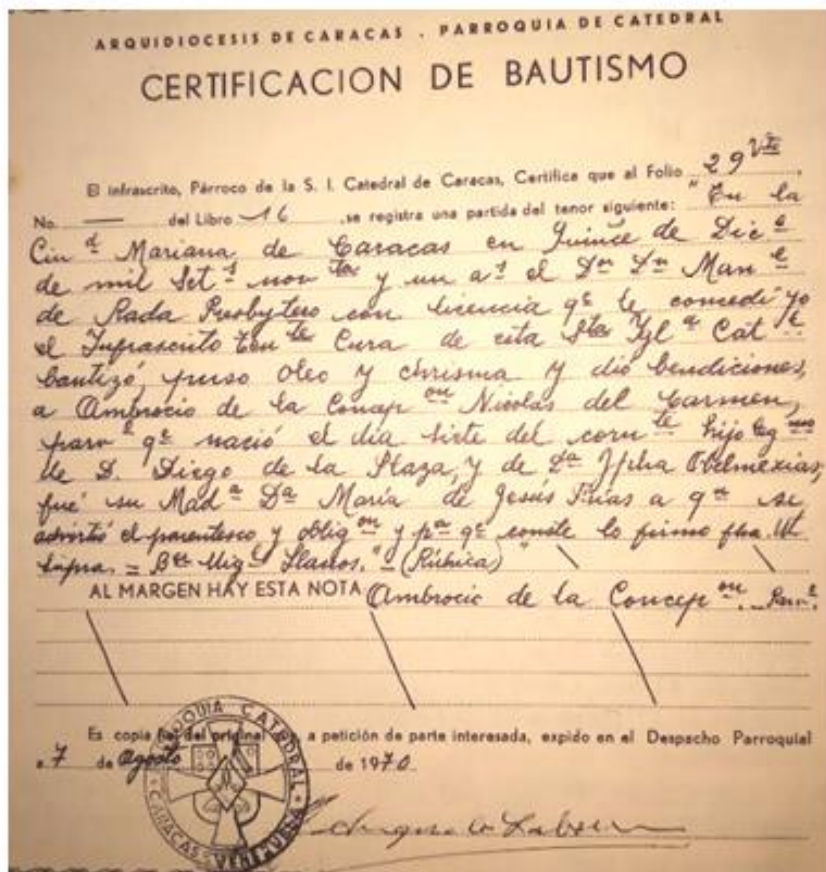 ARQUIDIOCESIS DE CARACAS . PARROQUIA DE CATEDRAL
CERTIFICACION DE BAUTISMO
El infrascrito, Párroco de la S. I. Catedral de Caracas, Certifica que al Folio 29 Vto.
No. — del Libro 16 se registra una partida del tenor siguiente: "En la
Ciu.d Mariana de Caracas en Quince de Dic.e
de mil Set.s nov.ta y un a.s el D.or D.n Man.l
de Rada Presbytero con licencia q.e le concedí yo
el Infrascrito Ten.te Cura de esta Sta Ygl.a Cat.l
bautizó, puso oleo y chrisma y dió bendiciones,
a Ambrocio de la Concep.on Nicolas del Carmen,
parv.o q.e nació el día siete del corr.te hijo leg.mo
de D. Diego de la Plaza, y de D.a Jpha Obelmexias,
fué su Mad.a D.a María de Jesús Frias a q.n se
advirtió el parentesco y oblig.on y p.a q.e conste lo firmo fha. Ut
supra. = B.er Mig.l Llanos." = (Rúbrica)"
AL MARGEN HAY ESTA NOTA Ambrocio de la Concep.on. - Parv.o
Es copia fiel del original a petición de parte interesada, expido en el Despacho Parroquial
a 7 de Agosto de 1970
PARROQUIA CATEDRAL
CARACAS VENEZUELA